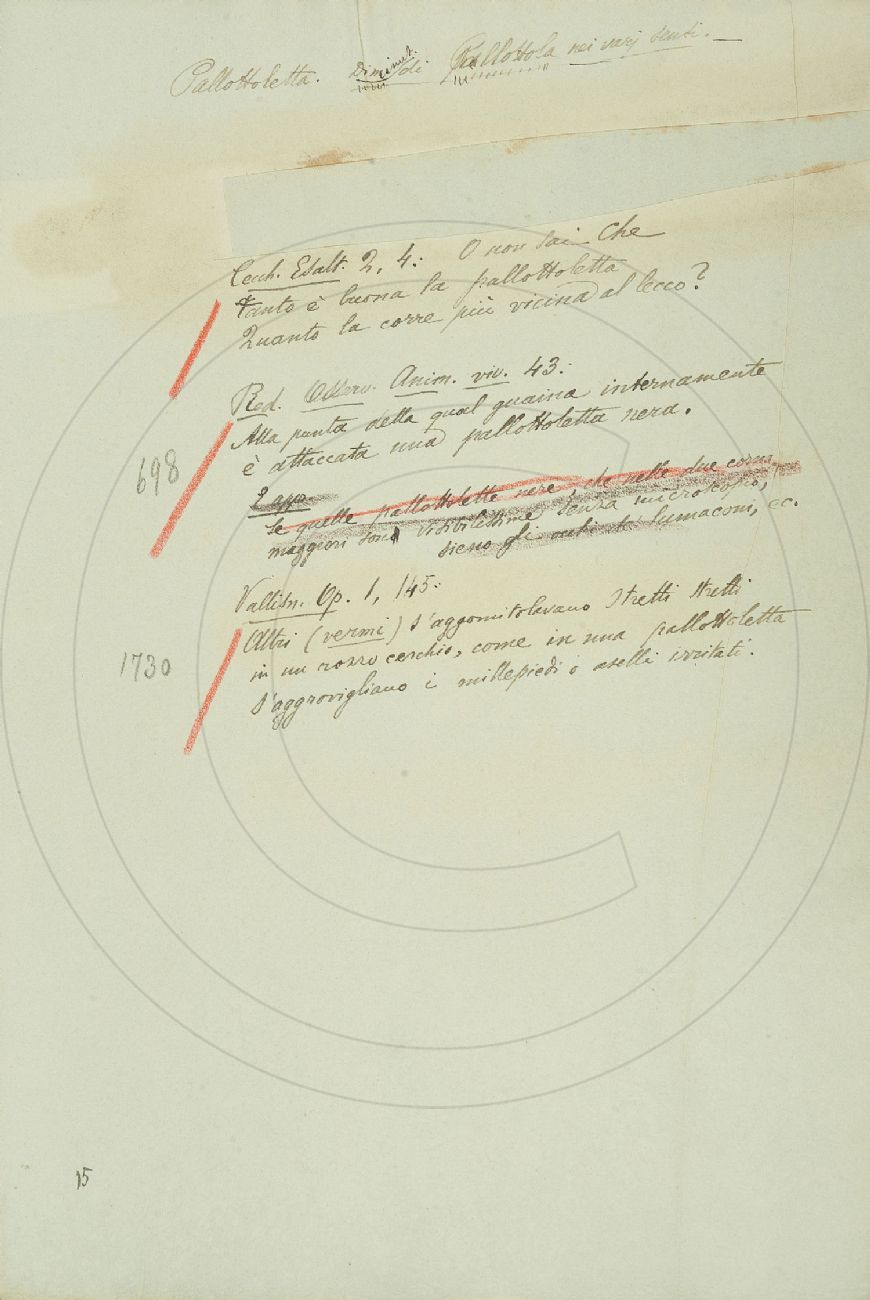 Pallottoletta. Diminut. di Pallottola nei varj sensi. —
Cecch. Esalt. 2, 4: O non sai che
Tanto è buona la pallottoletta
Quanto la corre più vicina al lecco?
Red. Osserv. Anim. viv. 43:
Alla punta della qual guaina internamente
è attaccata una pallottoletta nera.
698
E app.
Se quelle pallottolette nere, che nelle due corna
maggiori sono visibilissime senza microscopio,
sieno gli occhi de' lumaconi, ec.
Vallisn. Op. 1, 145:
Altri (vermi) s'aggomitolavano stretti stretti
1730
in un rozzo cerchio, come in una pallottoletta
s'aggrovigliano i millepiedi o aselli irritati.
15